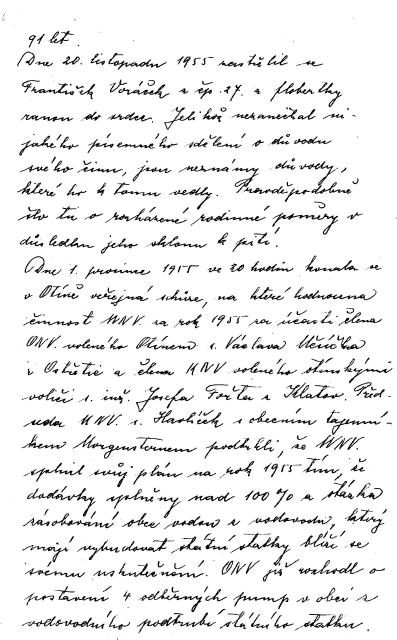 91 let.
Dne 20. listopadu 1955 zastřelil se
František Voráček z čp. 27. z flobertky
ranou do srdce. Jelikož nezanechal ni-
jakého písemného sdělení o důvodu
svého činu, jsou neznámy důvody,
které ho k tomu vedly. Pravděpodobně
šlo tu o rozhárané rodinné poměry v
důsledku jeho sklonu k pití.
Dne 1. prosince 1955 ve 20 hodin konala se
v Otíně veřejná schůze, na které hodnocena
činnost MNV. za rok 1955 za účasti člena
ONV. voleného Otínem s. Václava
z a člena KNV voleného zdejšími
voliči s. inž. Josefa z Klatov. Před-
seda MNV. s. Havlíček s obecním tajemní-
kem Morgensternem podtrhli, že MNV.
splnil svůj plán na rok 1955 tím, že
dodávky splněny nad 100% a otázka
zásobování obce vodou z vodovodu, který
mají vybudovat státní statky blíží se
svému uskutečnění. ONV již rozhodl o
postavení 4 odběrných pump v obci z
vodovodního potrubí státního statku.